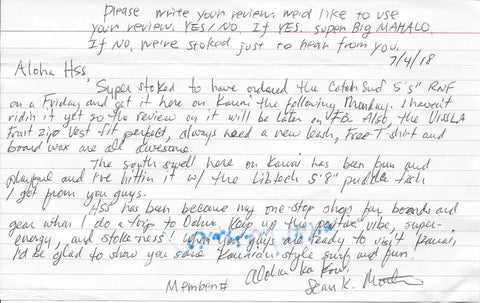 Please write your review. we'd like to use
your review. YES/NO. If YES. super Big MAHALO.
If NO, we're stoked just to hear from you.
7/4/18
Aloha HSS
Super stoked to have ordered the Catch Surf 5'5" RNF
on a Friday and get it here on Kauai the following Monday. I haven't
ridin it yet so the review on it will be later on FB. Also the VISSLA
front zip vest fit perfect, always need a new leash, Free-T shirt and
board wax are all awesome.
The south swell here on Kauai has been fun and
playful and I've hittin it w/ the Libtech 5'8" puddle fish
I got from you guys.
HSS has been became my one-stop shop for boards and
gear when I do a trip to Oahu. Keep up the positive vibe, super-
energy, and stoke-ness! When you guys are ready to visit Kauai,
I'd be glad to show you some Kauaian style surf and fun!
Aloha ka kou,
Member# Sean K.